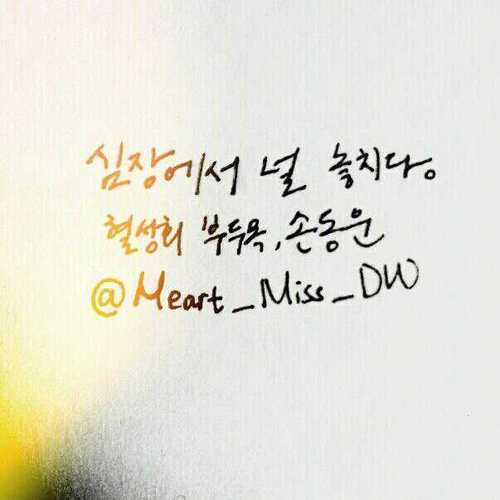 심장에서 널 놓치다.
혈성회 부두목, 손동운
@Meart_Miss_DW